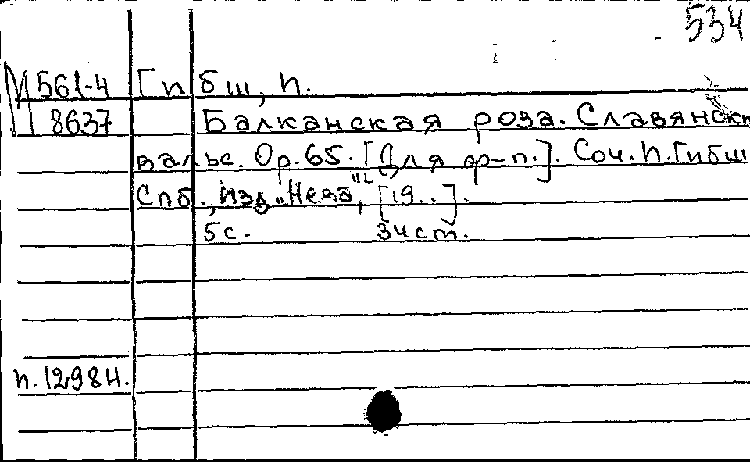 534
М 561-4 Гибш, П.
8637 Балканская роза. Славянск
вальс. Ор. 65. [Для ф-п.]. Соч. П. Гибш
Спб., изд. "Нева", [19..].
5 с. 3 ист.
п. 12984.